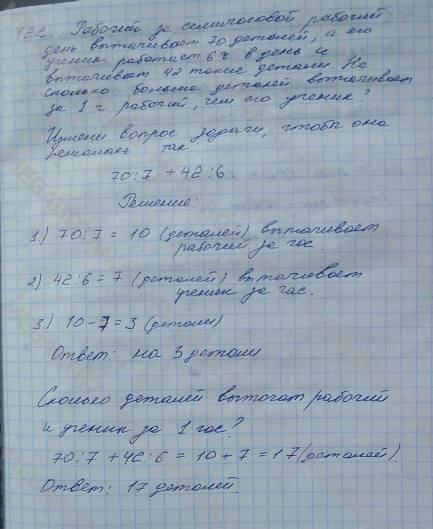 122. Рабочий за семичасовой рабочий
день вытачивает 70 деталей, а его
ученик работает 6 ч в день и
вытачивает 42 такие детали. На
сколько больше деталей вытачивает
за 1 ч рабочий, чем его ученик?
Измени вопрос задачи, чтобы она
решалась так
70:7 + 42:6.
Решение:
1) 70:7 = 10 (деталей) вытачивает
рабочий за час.
2) 42:6 = 7 (деталей) вытачивает
ученик за час.
3) 10 - 7 = 3 (детали)
Ответ: на 3 детали
Сколько деталей выточат рабочий
и ученик за 1 час?
70:7 + 42:6 = 10 + 7 = 17 (деталей).
Ответ: 17 деталей.